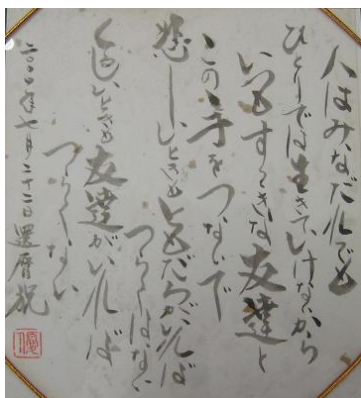 人はみなだれでも
ひとりでは生きていけないから
いつもすてきな友達と
この手をつないで
悲しいときもともだちがいれば
つらくはない
くるしいときも友達がいれば
つらくない
二〇〇〇年七月二十二日 還暦祝